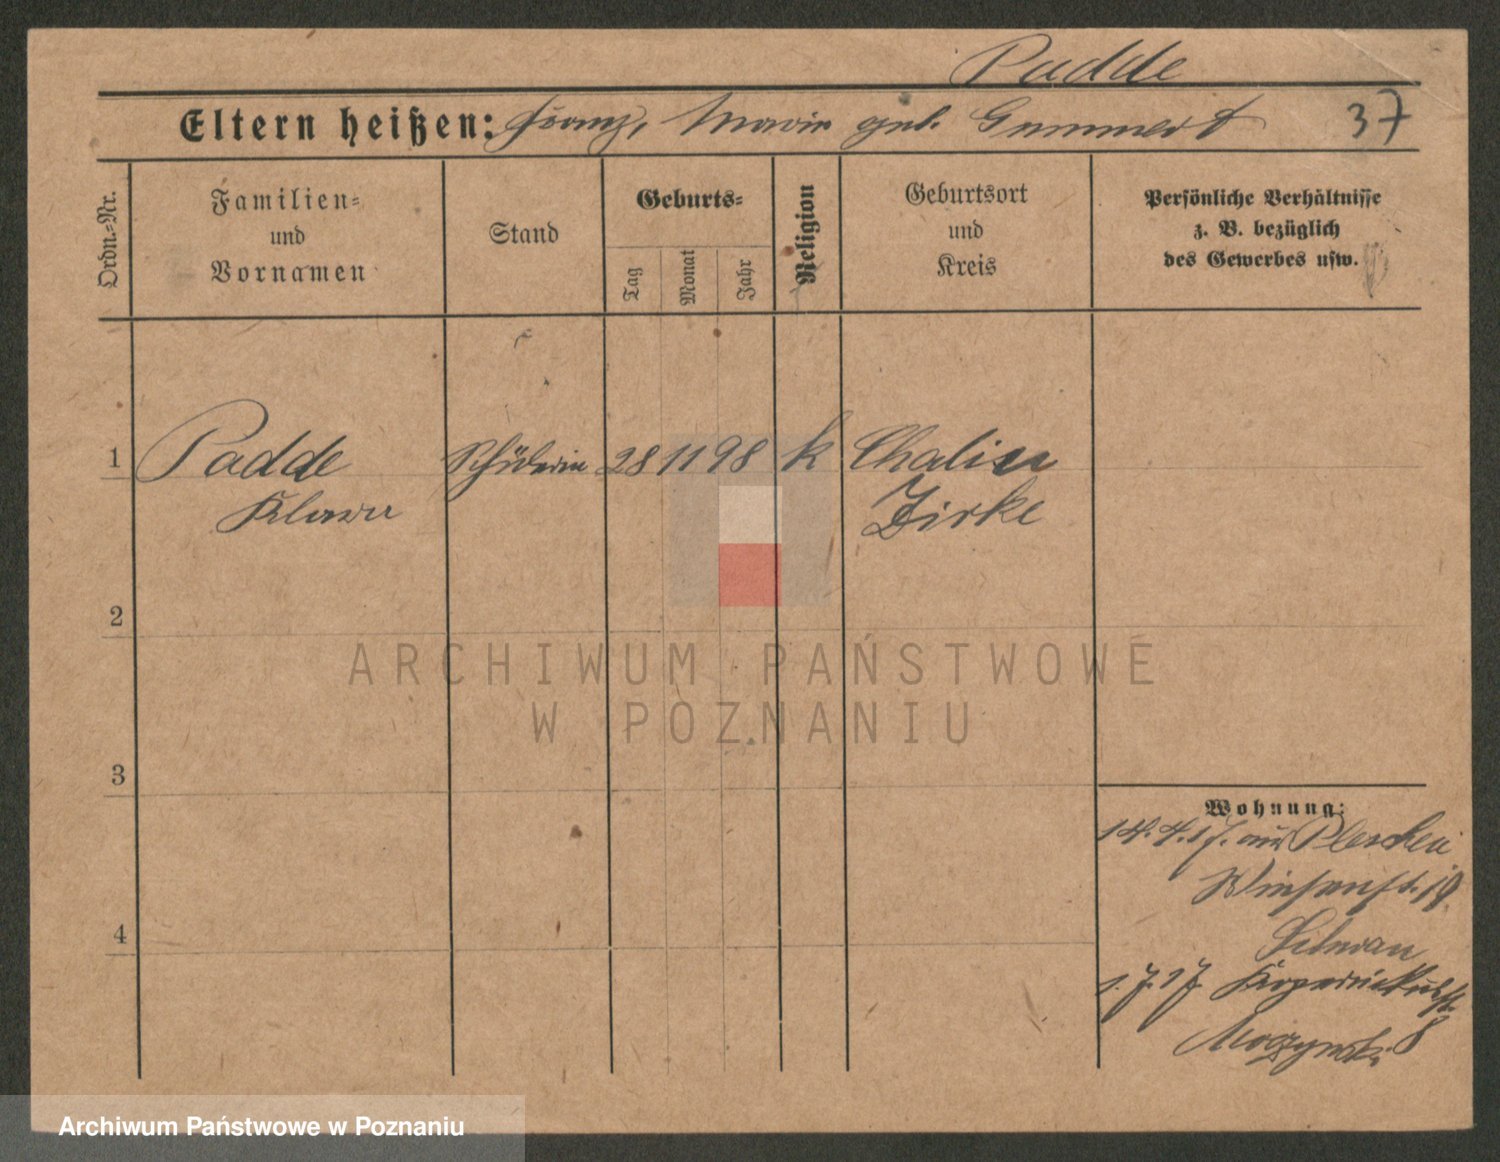 Padde
Eltern heißen: Franz, Maria geb. Gummert
37
Ordn.-Nr.
Familien-
und
Vornamen
Stand
Geburts-
Tag
Monat
Jahr
Religion
Geburtsort
und
Kreis
Persönliche Verhältnisse
z. B. bezüglich
des Gewerbes usw.
1 Padde Schülerin 28 11 98 k Chalin
Klara Zirke
2
3
4
Wohnung:
14.4.17. aus Pleschen
19
1.7.17
8
ARCHIWUM PAŃSTWOWE
W POZNANIU
Archiwum Państwowe w Poznaniu